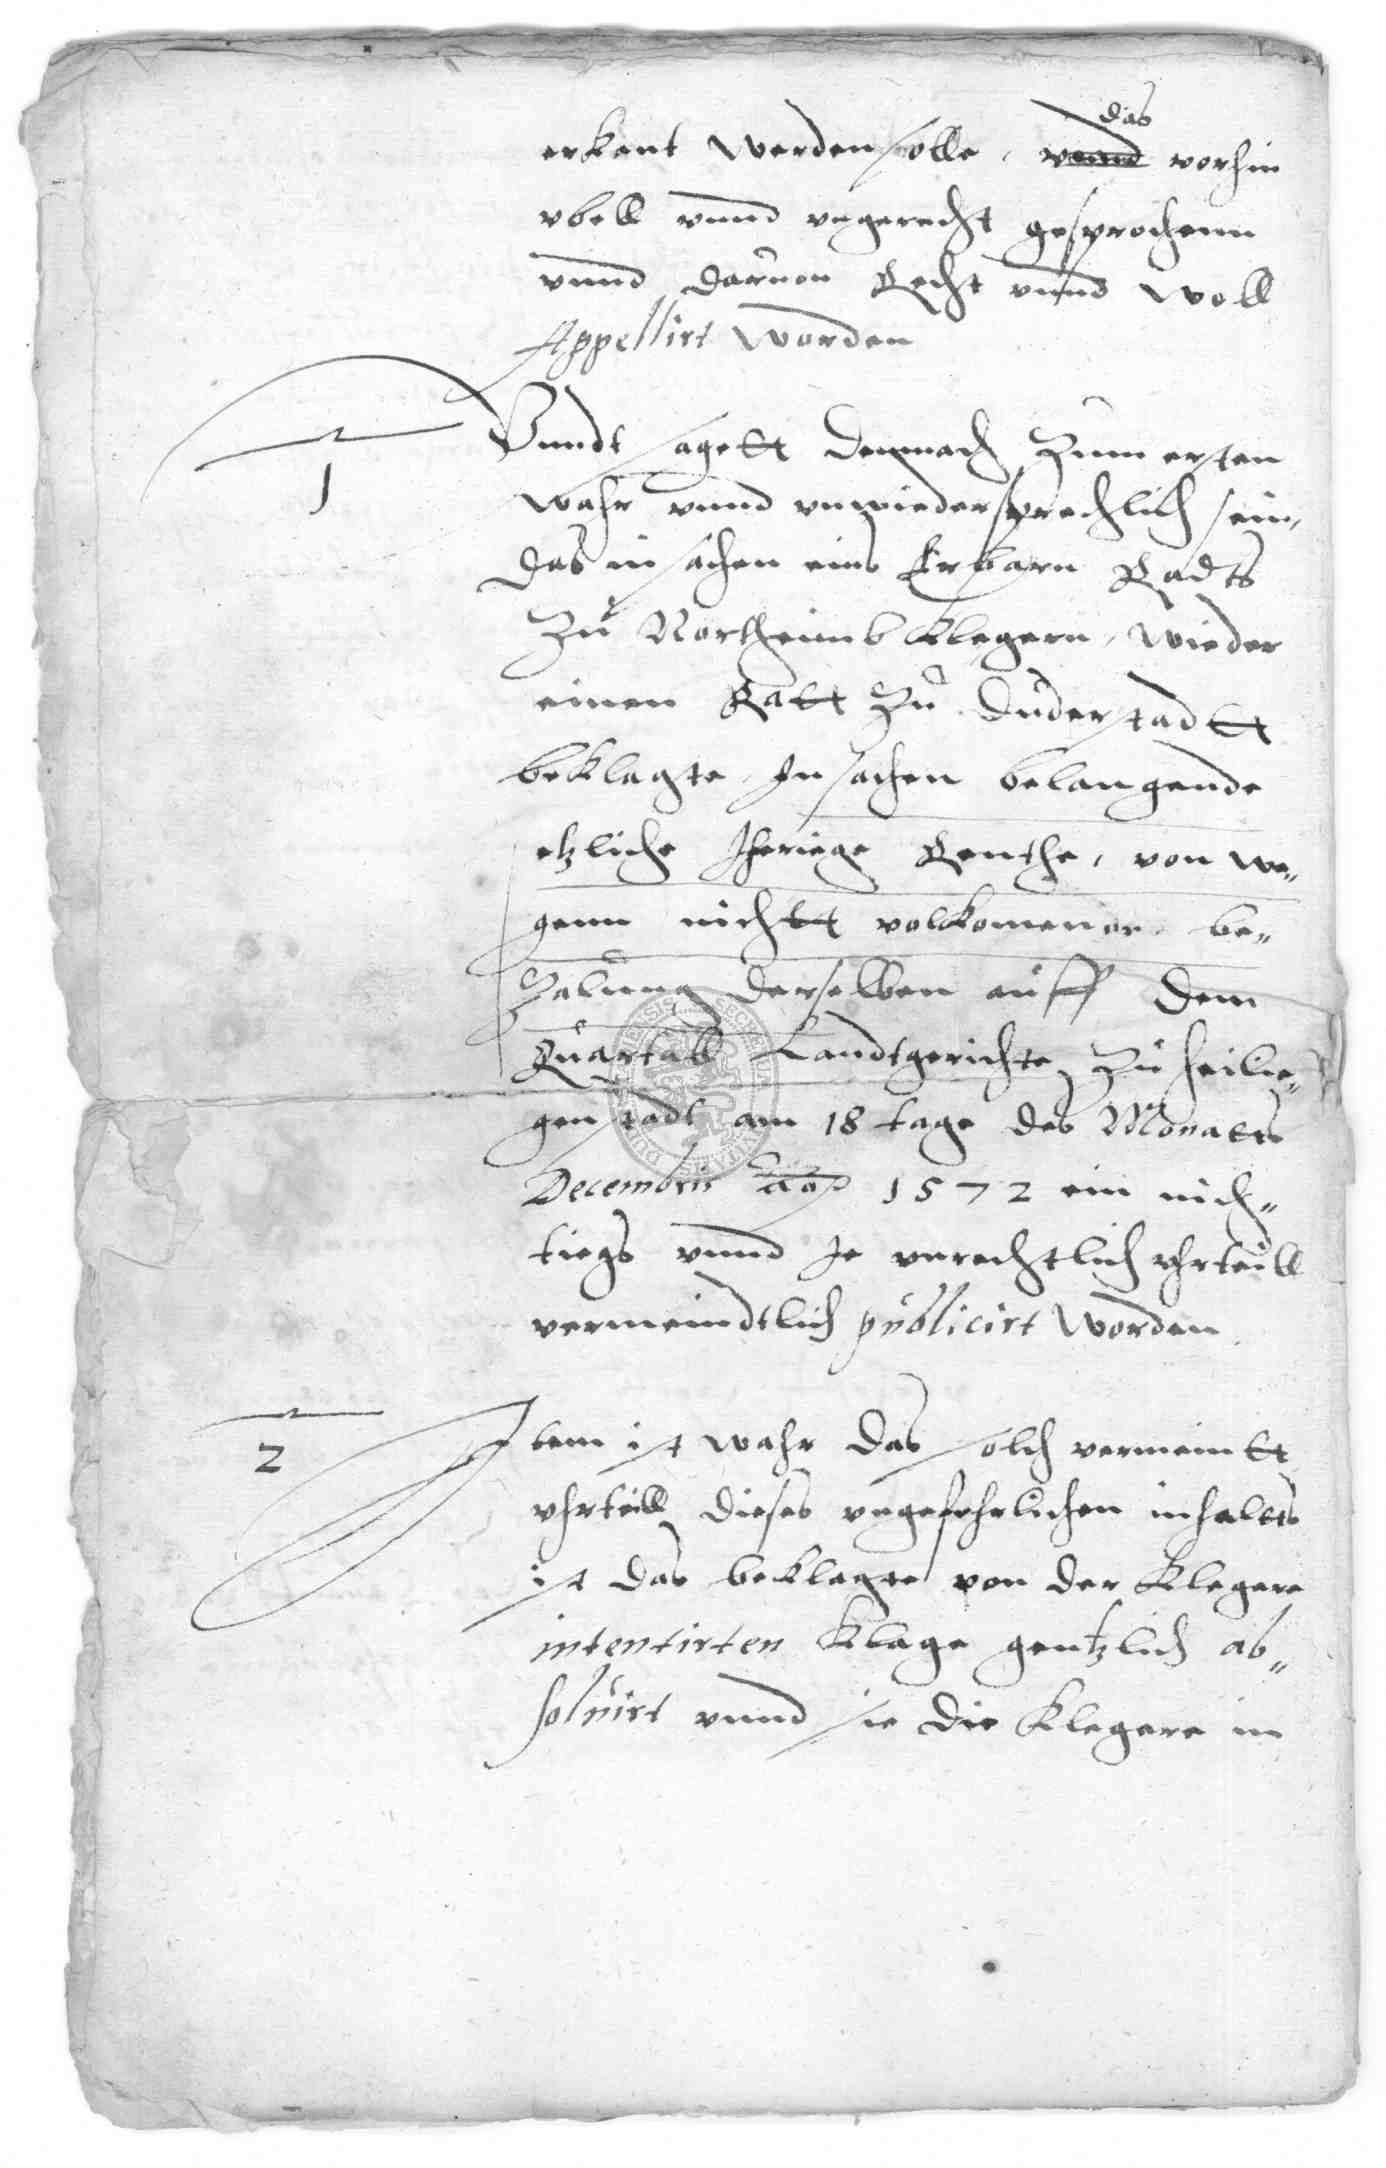 das
erkant werden solle, vnnd vorhin
vbell vnnd vngerecht gesprochenn
vnnd daruon Recht vnnd woll
Appellirt worden
1
Vnndt sagett demnach Zum ersten
wahr vnnd vnwiedersprechlich sein,
das in sachen eins Erbarn Radts
Zu Northeimb Klegern, wieder
einen Ratt Zu Duderstadtt
beklagte, In sachen belangende
etzliche Iherige Renthe, von we„
genn nichtt volkomener be„
Zalung derselben auff dem
Quartall Landtgerichte Zu heilie„
genstadt am 18 tage des Monatts
Decembris 1572 ein nich„
tiegs vnnd Je vnrechtlich vhrteill
vermeindtlich publicirt worden
2
Item ist wahr das solch vermeintt
vhrteill dieses vngefehrlichen inhaltts
ist das beklagte von der Klegere
intentirten Klage gentzlich ab„
soluirt vnnd sie die Klegere in